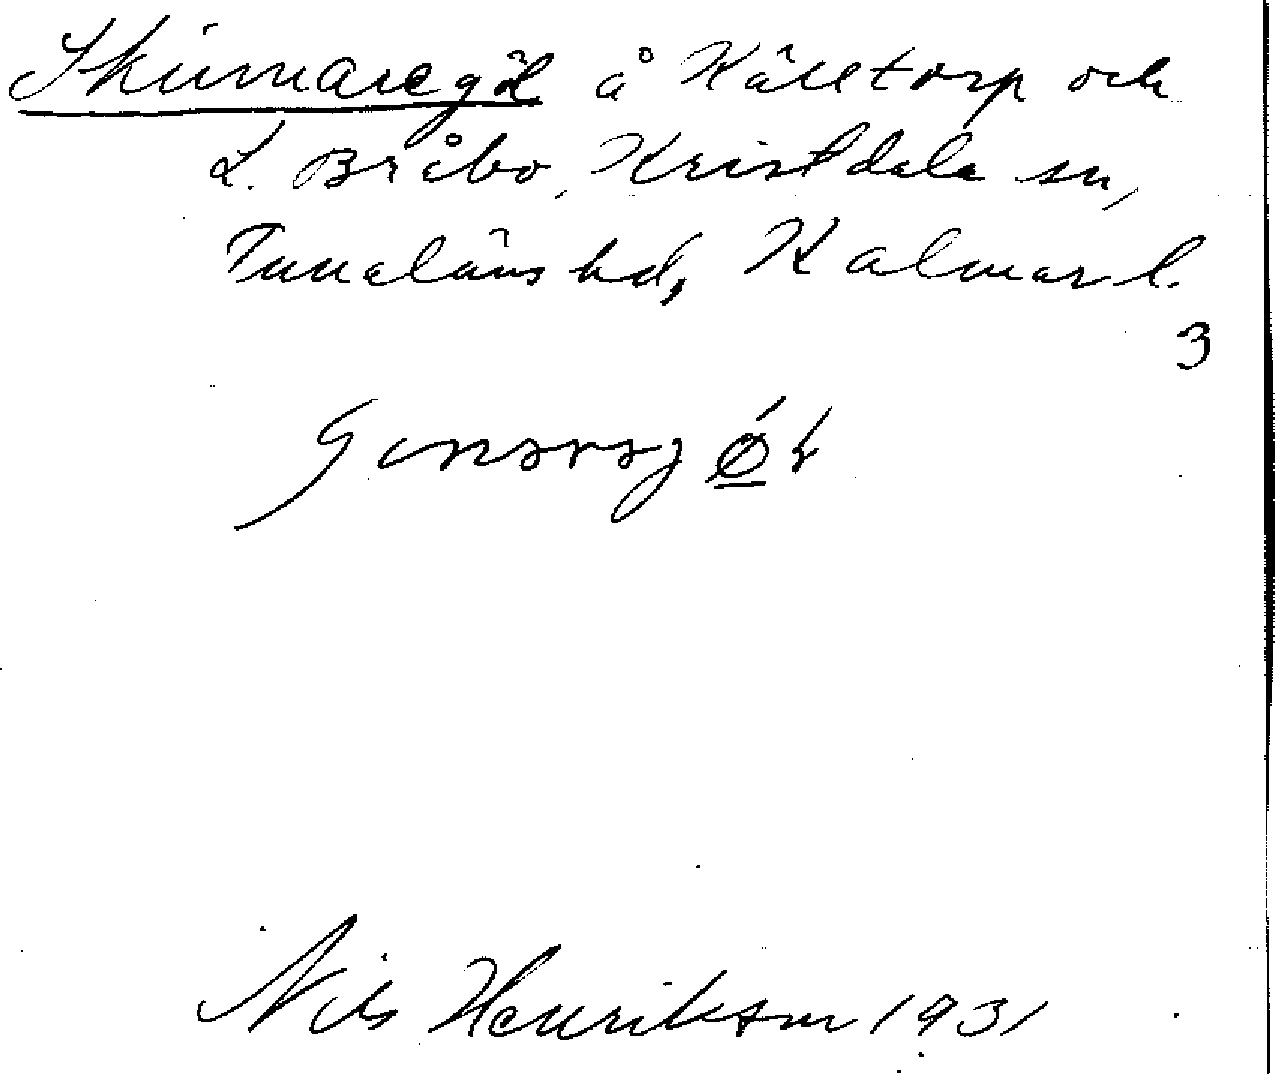 Skinnaregöl å Källtorp och
L. Bråbo, Kristdala sn,
Tunaläns hd, Kalmar l.
3
Nils Henriksson 1931